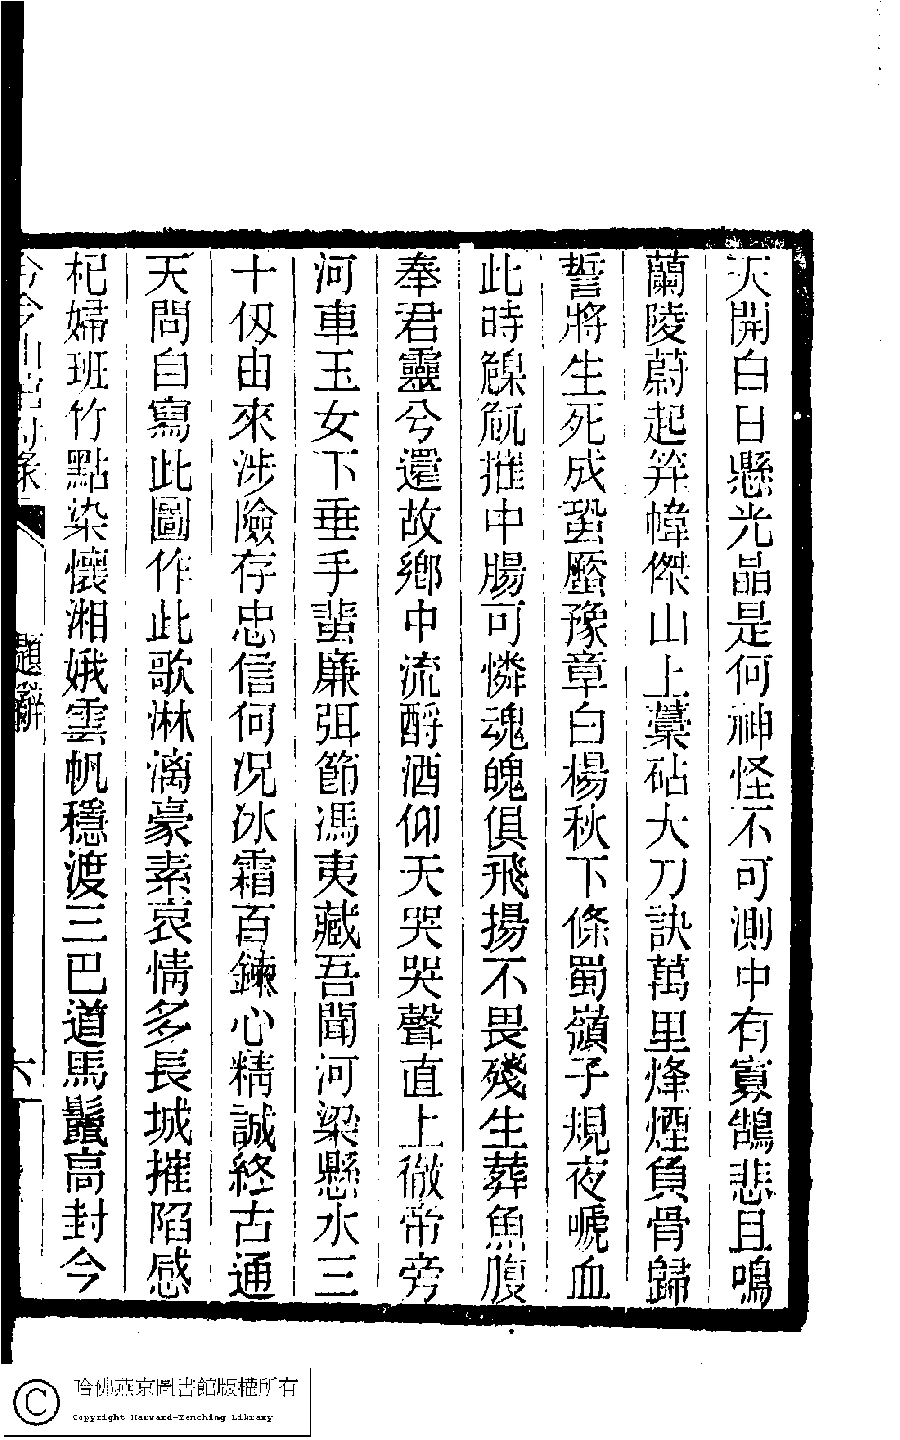 天開白日懸光晶是何神怪不可測中有寡鵠悲且鳴
蘭陵蔚起笄幃傑山上藁砧大刀訣萬里烽煙負骨歸
誓將生死成蛩蟨豫章白楊秋下條蜀嶺子規夜嗁血
此時艆舧摧中腸可憐魂魄俱飛揚不畏殘生葬魚腹
奉君靈兮還故鄉中流酹酒仰天哭哭聲直上徹帝旁
河車玉女下垂手蜚廉弭節馮夷藏吾聞河梁懸水三
十仭由來涉險存忠信何况冰霜百鍊心精誠終古通
天問自寫此圖作此歌淋漓豪素哀情多長城摧陷感
杞婦班竹點染懷湘娥雲帆穩渡三巴道馬鬛高封今
題辭
六
哈佛燕京圖書館版權所有
Copyright Harvard-Yenching Library